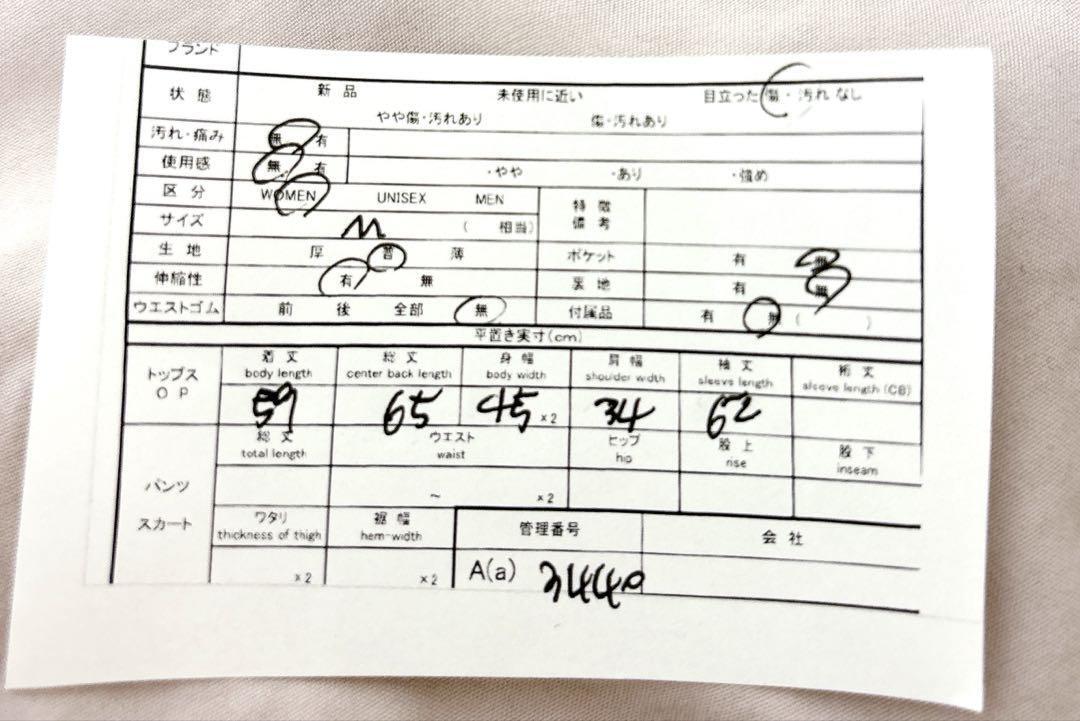 ブランド
状態 新品 未使用に近い 目立った傷・汚れなし
やや傷・汚れあり 傷・汚れあり
汚れ・痛み 無 有
使用感 無 有 ・やや ・あり ・強め
区分 WOMEN UNISEX MEN 特徴
備考
サイズ M ( 相当)
生地 厚 普 薄 ポケット 有 無
伸縮性 有 無 裏地 有 無
ウエストゴム 前 後 全部 無 付属品 有 無 ( )
平置き実寸(cm)
トップス
OP
着丈 総丈 身幅 肩幅 袖丈 裄丈
body length center back length body width shoulder width sleeve length sleeve length (CB)
59 65 45 ×2 34 62
パンツ
スカート
総丈 ウエスト ヒップ 股上 股下
total length waist hip rise inseam
~ ×2
ワタリ 裾幅 管理番号 会社
thickness of thigh hem-width
×2 ×2 A(a) 3440